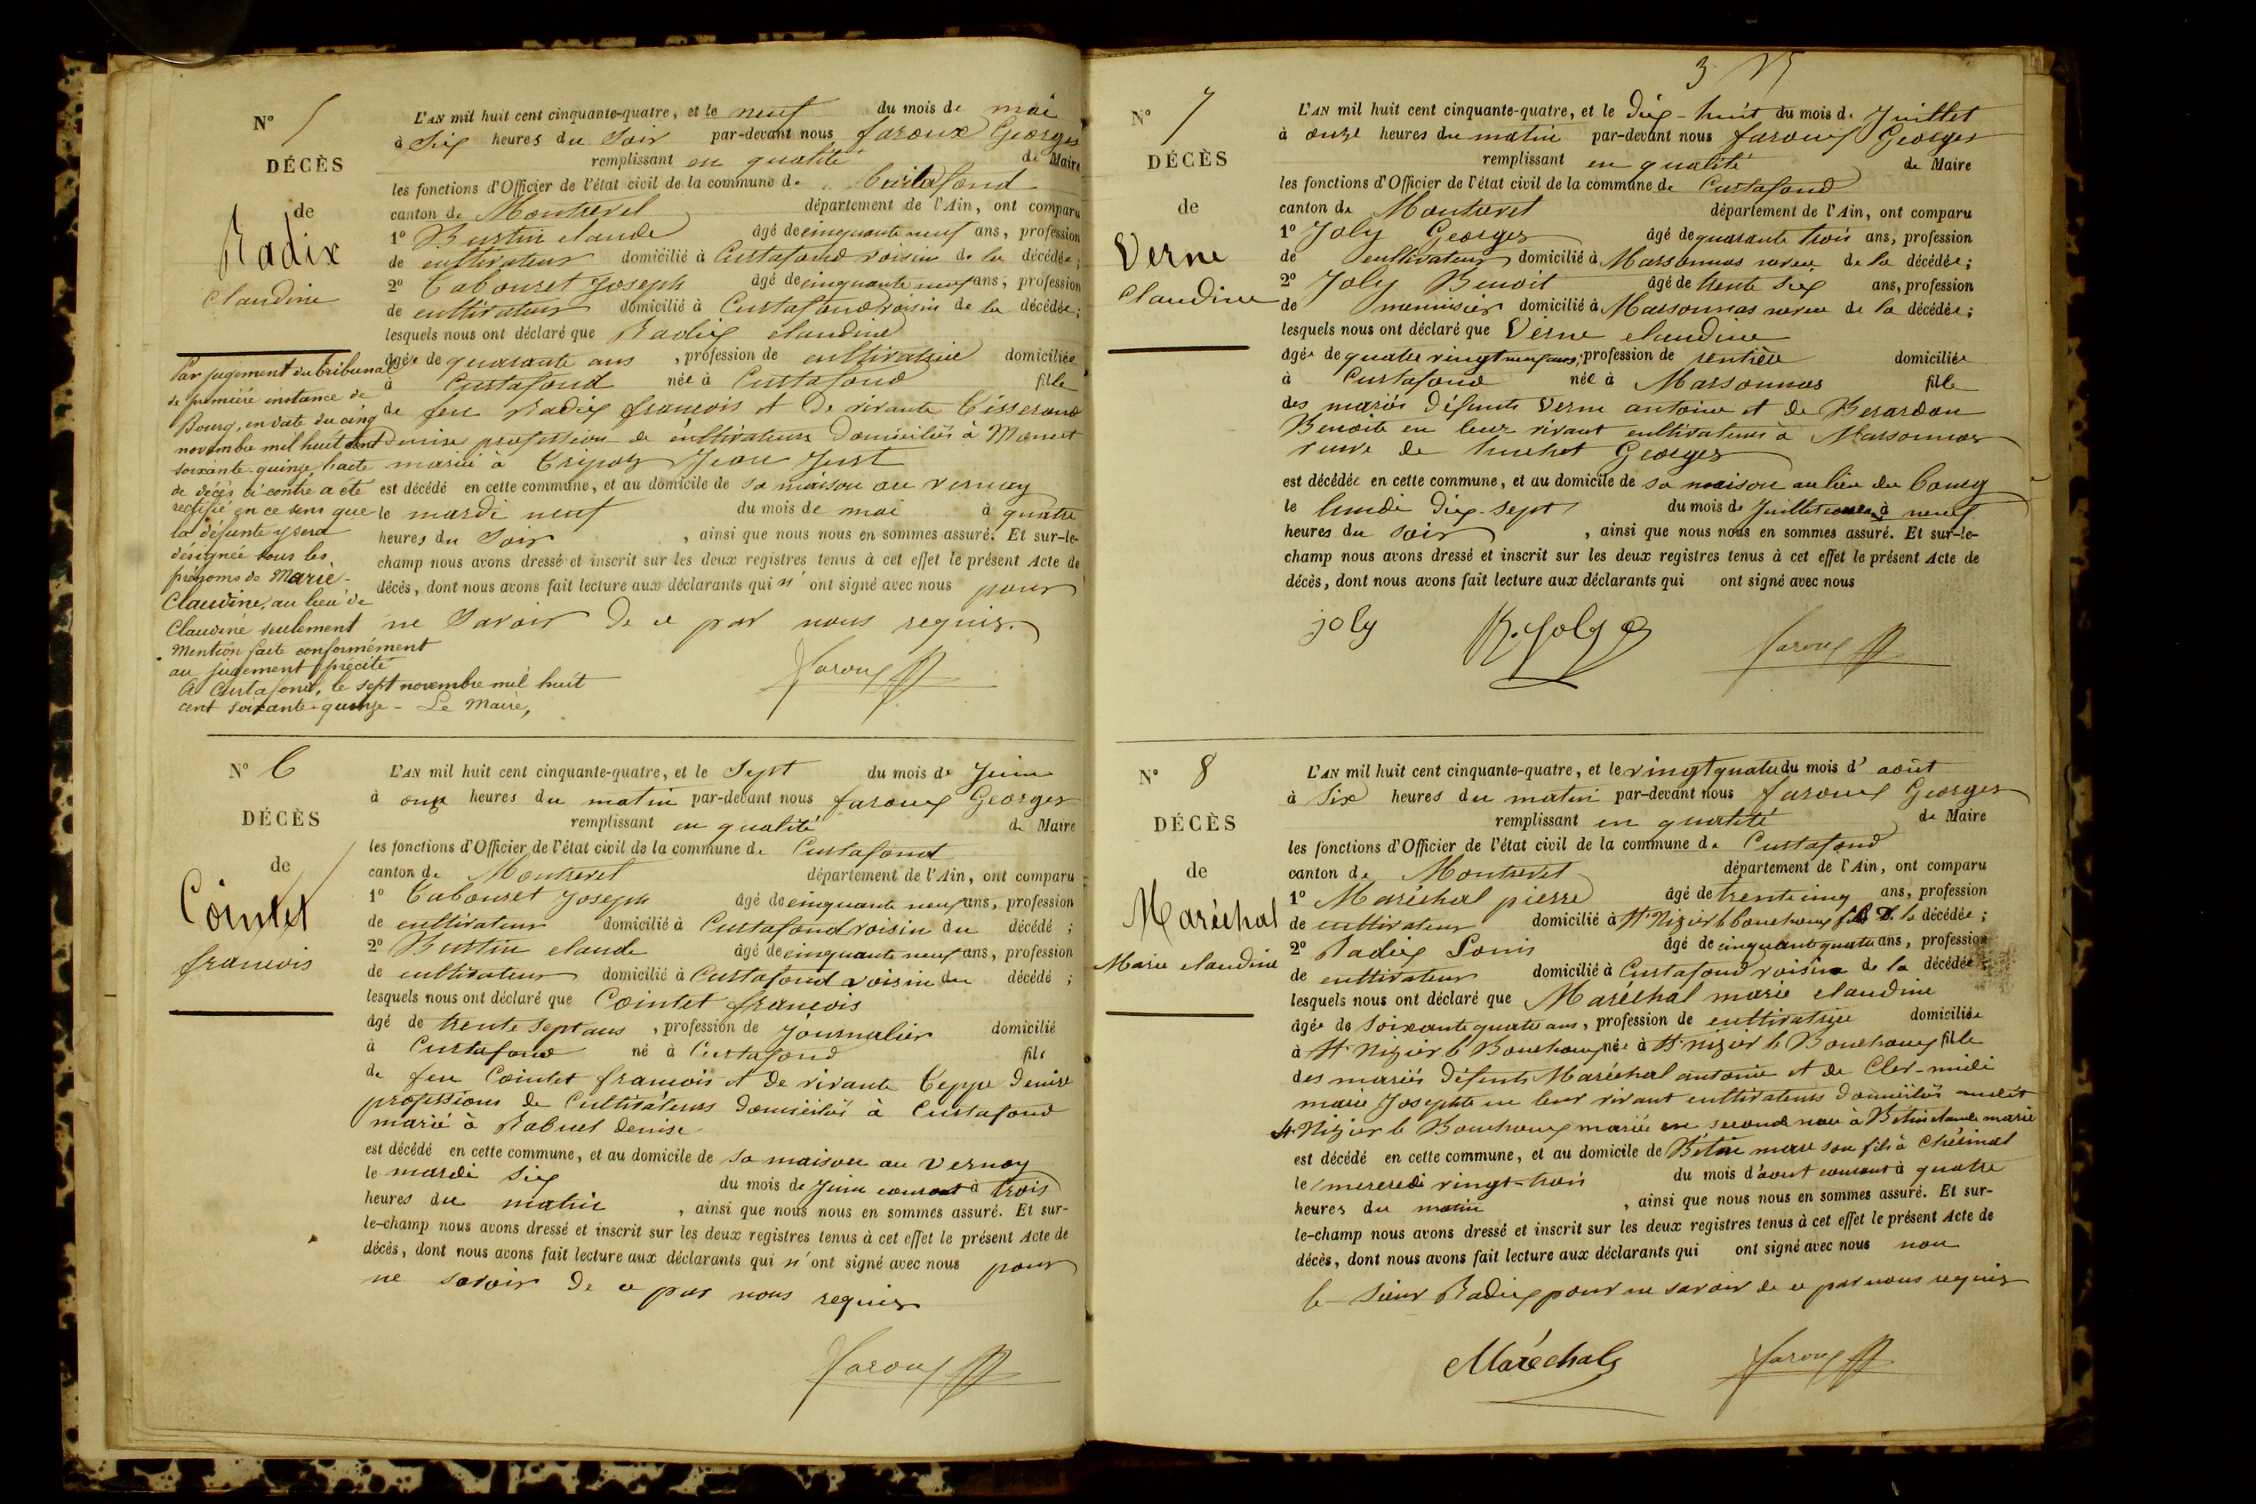 N° 5
DÉCÈS
de
Radix
Claudine
L'AN mil huit cent cinquante-quatre, et le neuf du mois de mai
à Six heures du Soir par-devant nous faroux Georges
remplissant en qualité de Maire
les fonctions d'Officier de l'état civil de la commune de Curtafond
canton de Montrevel département de l'Ain, ont comparu
1° Burtin claude âgé de cinquante neuf ans, profession
de cultivateur domicilié à Curtafond voisin de la décédée;
2° Tabouret Joseph âgé de cinquante neuf ans, profession
de cultivateur domicilié à Curtafond voisin de la décédée;
lesquels nous ont déclaré que Radix claudine
âgée de quarante ans, profession de cultivatrice domiciliée
à Curtafond née à Curtafond fille
de feu Radix francois et De vivante Tisserand
Denise profession de cultivateurs Domiciliés à
mariée à Tripoz Jean Just
est décédé en cette commune, et au domicile de sa maison au vernay
le mardi neuf du mois de mai à quatre
heures du Soir, ainsi que nous nous en sommes assuré. Et sur-le-
champ nous avons dressé et inscrit sur les deux registres tenus à cet effet le présent Acte de
décès, dont nous avons fait lecture aux déclarants qui n'ont signé avec nous pour
ne Savoir De ce par nous requis.
Faroux
Par jugement du tribunal
de première instance de
Bourg, en date du cinq
novembre mil huit cent
soixante-quinze, l'acte
de décès ci-contre a été
rectifié en ce sens que
la défunte y sera
désignée sous les
prénoms de Marie-
Claudine, au lieu de
Claudine seulement
Mention faite conformément
au jugement précité
A Curtafond, le sept novembre mil huit
cent soixante-quinze - Le Maire,
N° 6
DÉCÈS
de
Cointet
francois
L'AN mil huit cent cinquante-quatre, et le Sept du mois de Juin
à onze heures du matin par-devant nous faroux Georges
remplissant en qualité de Maire
les fonctions d'Officier de l'état civil de la commune de Curtafond
canton de Montrevel département de l'Ain, ont comparu
1° Tabouret Joseph âgé de cinquante neuf ans, profession
de cultivateur domicilié à Curtafond voisin du décédé;
2° Burtin claude âgé de cinquante neuf ans, profession
de cultivateur domicilié à Curtafond voisin du décédé;
lesquels nous ont déclaré que Cointet francois
âgé de trente sept ans, profession de Journalier domicilié
à Curtafond né à Curtafond fils
de feu Cointet francois et De vivante Teppe Denise
professions de Cultivateurs Domiciliés à Curtafond
marié à Rabuel Denise
est décédé en cette commune, et au domicile de sa maison au Vernay
le mardi six du mois de Juin courant à trois
heures du matin, ainsi que nous nous en sommes assuré. Et sur-
le-champ nous avons dressé et inscrit sur les deux registres tenus à cet effet le présent Acte de
décès, dont nous avons fait lecture aux déclarants qui n'ont signé avec nous pour
ne savoir De ce par nous requis
Faroux
3
N° 7
DÉCÈS
de
Verne
Claudine
L'AN mil huit cent cinquante-quatre, et le Dix-huit du mois de Juillet
à onze heures du matin par-devant nous faroux Georges
remplissant en qualité de Maire
les fonctions d'Officier de l'état civil de la commune de Curtafond
canton de Montrevel département de l'Ain, ont comparu
1° Joly Georges âgé de quarante trois ans, profession
de cultivateur domicilié à Marsonnas neveu de la décédée;
2° Joly Benoit âgé de trente six ans, profession
de menuisier domicilié à Marsonnas neveu de la décédée;
lesquels nous ont déclaré que Verne claudine
âgée de quatre vingt neuf ans, profession de rentière domiciliée
à Curtafond née à Marsonnas fille
des mariés Défunts Verne antoine et de Berardan
Benoite en leur vivant cultivateurs à Marsonnas
veuve de huchet Georges
est décédée en cette commune, et au domicile de sa maison au lieu du bourg
le lundi Dix-sept du mois de Juillet courant à neuf
heures du soir, ainsi que nous nous en sommes assuré. Et sur-le-
champ nous avons dressé et inscrit sur les deux registres tenus à cet effet le présent Acte de
décès, dont nous avons fait lecture aux déclarants qui ont signé avec nous
joly B. Joly Faroux
N° 8
DÉCÈS
de
Maréchal
Marie claudine
L'AN mil huit cent cinquante-quatre, et le vingt quatre du mois d'août
à Six heures du matin par-devant nous faroux Georges
remplissant en qualité de Maire
les fonctions d'Officier de l'état civil de la commune de Curtafond
canton de Montrevel département de l'Ain, ont comparu
1° Maréchal pierre âgé de trente cinq ans, profession
de cultivateur domicilié à St Nizier le Bouchoux fils de la décédée;
2° Radix Louis âgé de cinquante quatre ans, profession
de cultivateur domicilié à Curtafond voisin de la décédée;
lesquels nous ont déclaré que Maréchal marie claudine
âgée de soixante quatre ans, profession de cultivatrice domiciliée
à St Nizier le Bouchoux née à St nizier le Bouchoux fille
des mariés Défunts Maréchal antoine et de Clermidi
marie Josephte en leur vivant cultivateurs Domiciliés audit
St Nizier le Bouchoux mariée en seconde noce à Betin claude marie
est décédé en cette commune, et au domicile de Bétin marc son fils à Chevinal
le mercredi vingt-trois du mois d'aout courant à quatre
heures du matin, ainsi que nous nous en sommes assuré. Et sur-
le-champ nous avons dressé et inscrit sur les deux registres tenus à cet effet le présent Acte de
décès, dont nous avons fait lecture aux déclarants qui ont signé avec nous non
le Sieur Radix pour ne savoir de ce par nous requis
Maréchal Faroux